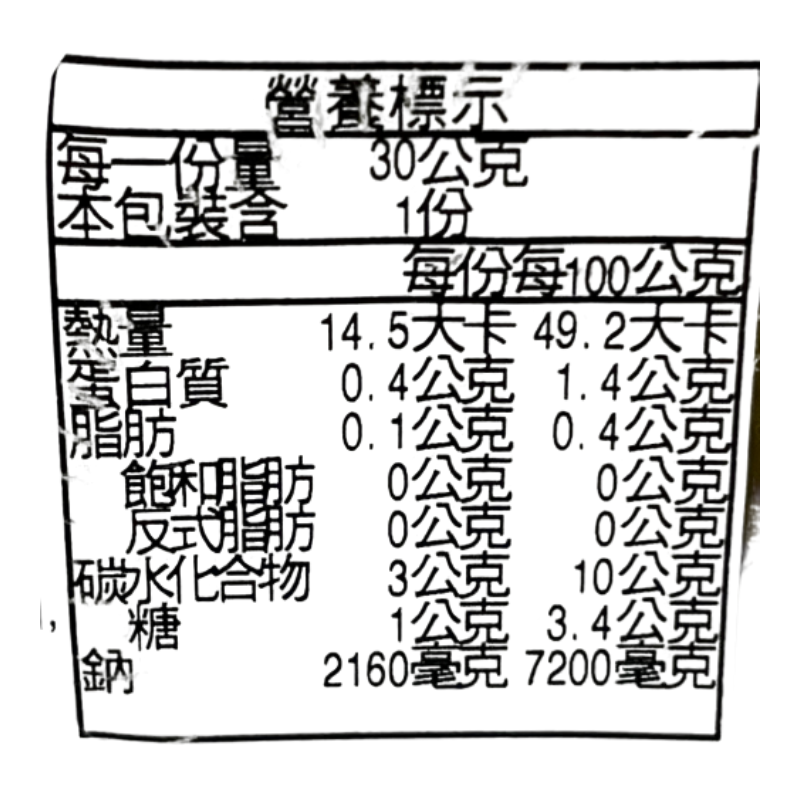 營養標示
每一份量 30公克
本包裝含 1份
每份 每100公克
熱量 14.5大卡 49.2大卡
蛋白質 0.4公克 1.4公克
脂肪 0.1公克 0.4公克
飽和脂肪 0公克 0公克
反式脂肪 0公克 0公克
碳水化合物 3公克 10公克
糖 1公克 3.4公克
鈉 2160毫克 7200毫克